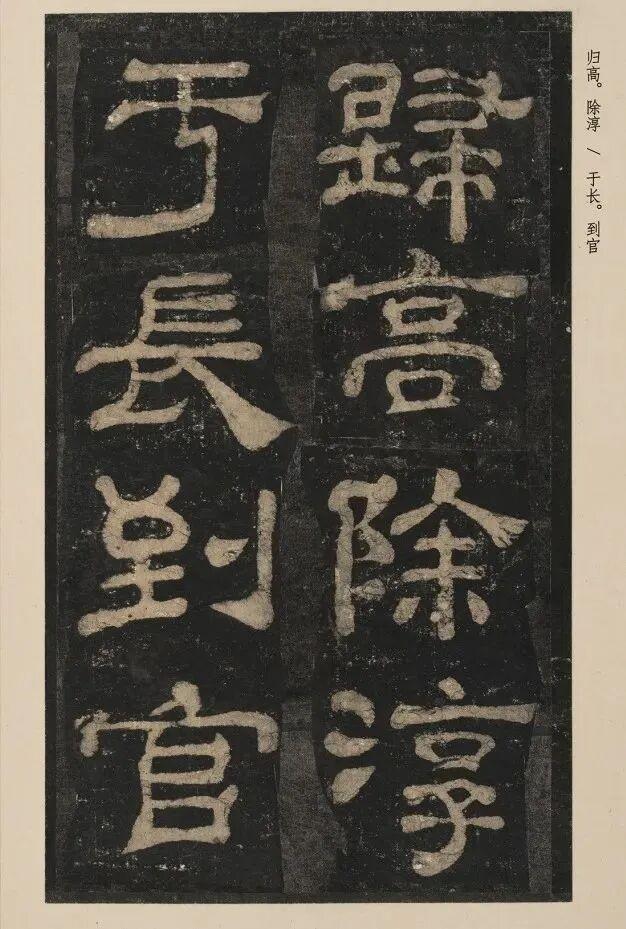 归高。除淳 / 于长。到官
歸高除淳
于長到官